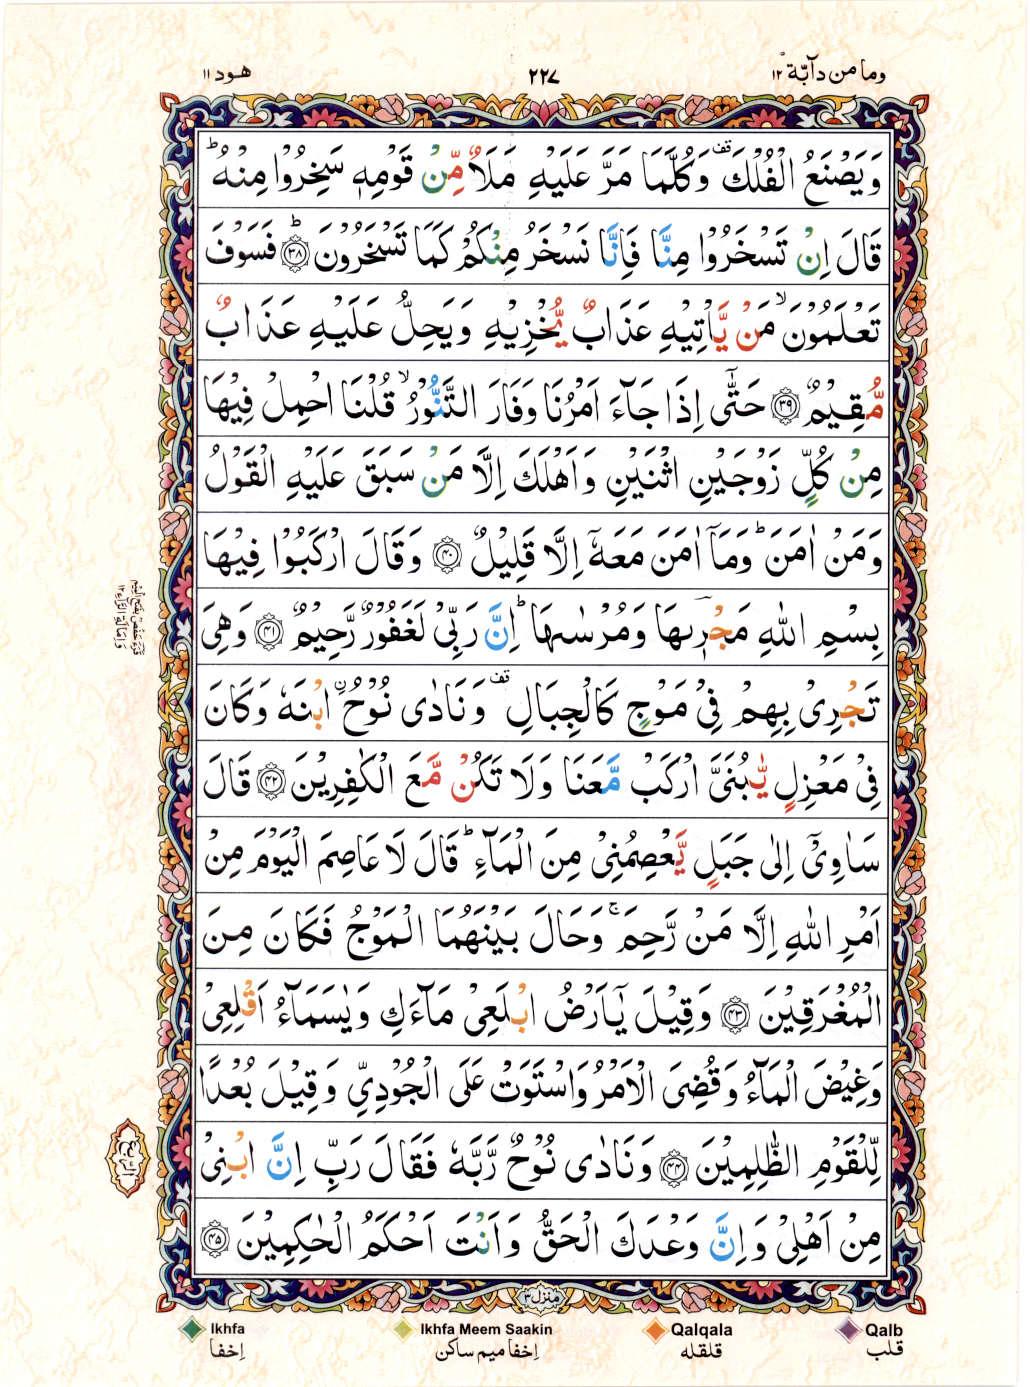 وما من دآبّة ١٢
٢٢٧
هود ١١
وَيَصْنَعُ الْفُلْكَ ۫ وَكُلَّمَا مَرَّ عَلَيْهِ مَلَاٌ مِّنْ قَوْمِهٖ سَخِرُوْا مِنْهُ ؕ
قَالَ اِنْ تَسْخَرُوْا مِنَّا فَاِنَّا نَسْخَرُ مِنْكُمْ كَمَا تَسْخَرُوْنَ ؕ ﴿۳۸﴾ فَسَوْفَ
تَعْلَمُوْنَ ۙ مَنْ يَّاْتِيْهِ عَذَابٌ يُّخْزِيْهِ وَيَحِلُّ عَلَيْهِ عَذَابٌ
مُّقِيْمٌ ﴿۳۹﴾ حَتّٰۤى اِذَا جَآءَ اَمْرُنَا وَفَارَ التَّنُّوْرُ ۙ قُلْنَا احْمِلْ فِيْهَا
مِنْ كُلٍّ زَوْجَيْنِ اثْنَيْنِ وَاَهْلَكَ اِلَّا مَنْ سَبَقَ عَلَيْهِ الْقَوْلُ
وَمَنْ اٰمَنَ ؕ وَمَاۤ اٰمَنَ مَعَهٗۤ اِلَّا قَلِيْلٌ ﴿۴۰﴾ وَقَالَ ارْكَبُوْا فِيْهَا
بِسْمِ اللّٰهِ مَجْرٖٮهَا وَمُرْسٰٮهَا ؕ اِنَّ رَبِّىْ لَغَفُوْرٌ رَّحِيْمٌ ﴿۴۱﴾ وَهِىَ
تَجْرِىْ بِهِمْ فِىْ مَوْجٍ كَالْجِبَالِ ۫ وَنَادٰى نُوْحُ ۨ ابْنَهٗ وَكَانَ
فِىْ مَعْزِلٍ يّٰبُنَىَّ ارْكَبْ مَّعَنَا وَلَا تَكُنْ مَّعَ الْكٰفِرِيْنَ ﴿۴۲﴾ قَالَ
سَاٰوِىْۤ اِلٰى جَبَلٍ يَّعْصِمُنِىْ مِنَ الْمَآءِ ؕ قَالَ لَا عَاصِمَ الْيَوْمَ مِنْ
اَمْرِ اللّٰهِ اِلَّا مَنْ رَّحِمَ ۚ وَحَالَ بَيْنَهُمَا الْمَوْجُ فَكَانَ مِنَ
الْمُغْرَقِيْنَ ﴿۴۳﴾ وَقِيْلَ يٰۤاَرْضُ ابْلَعِىْ مَآءَكِ وَيٰسَمَآءُ اَقْلِعِىْ
وَغِيْضَ الْمَآءُ وَقُضِىَ الْاَمْرُ وَاسْتَوَتْ عَلَى الْجُوْدِىِّ وَقِيْلَ بُعْدًا
لِّلْقَوْمِ الظّٰلِمِيْنَ ﴿۴۴﴾ وَنَادٰى نُوْحٌ رَّبَّهٗ فَقَالَ رَبِّ اِنَّ ابْنِىْ
مِنْ اَهْلِىْ وَاِنَّ وَعْدَكَ الْحَقُّ وَاَنْتَ اَحْكَمُ الْحٰكِمِيْنَ ﴿۴۵﴾
الربع
منزل ٣
Ikhfa
Ikhfa Meem Saakin
Qalqala
Qalb
اِخفا
اِخفا میم ساکن
قلقله
قلب